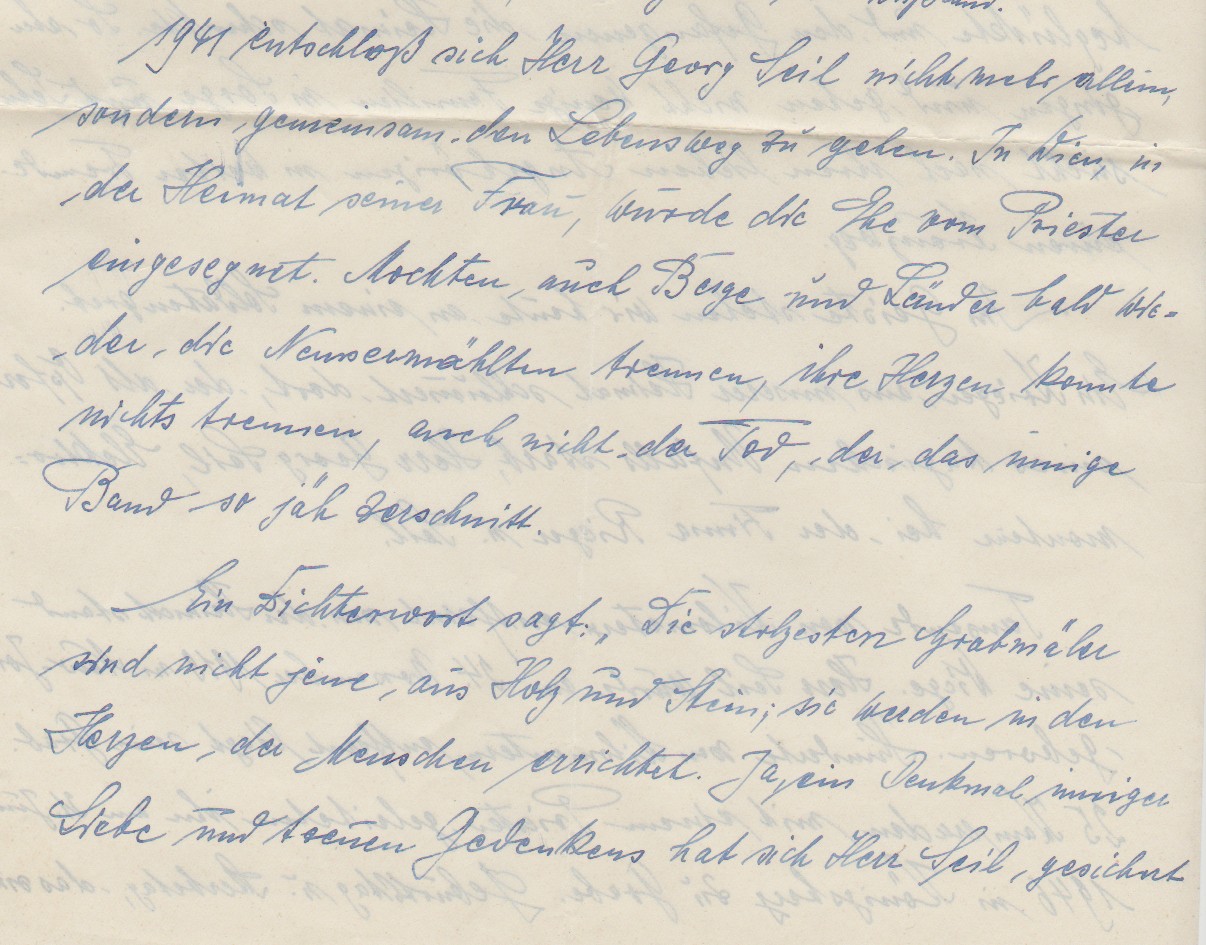 1941 entschloß sich Herr Georg Seil nicht mehr allein,
sondern gemeinsam den Lebensweg zu gehen. In Wien, in
der Heimat seiner Frau, wurde die Ehe vom Priester
eingesegnet. Mochten auch Berge und Länder bald wie-
der die Neuvermählten trennen, ihre Herzen konnte
nichts trennen, auch nicht der Tod, der das innige
Band so jäh zerschnitt.
Ein Dichterwort sagt: „Die stolzesten Grabmäler
sind nicht jene aus Holz und Stein; sie werden in den
Herzen der Menschen errichtet. Ja, ein Denkmal inniger
Liebe und treuen Gedenkens hat sich Herr Seil gesichert